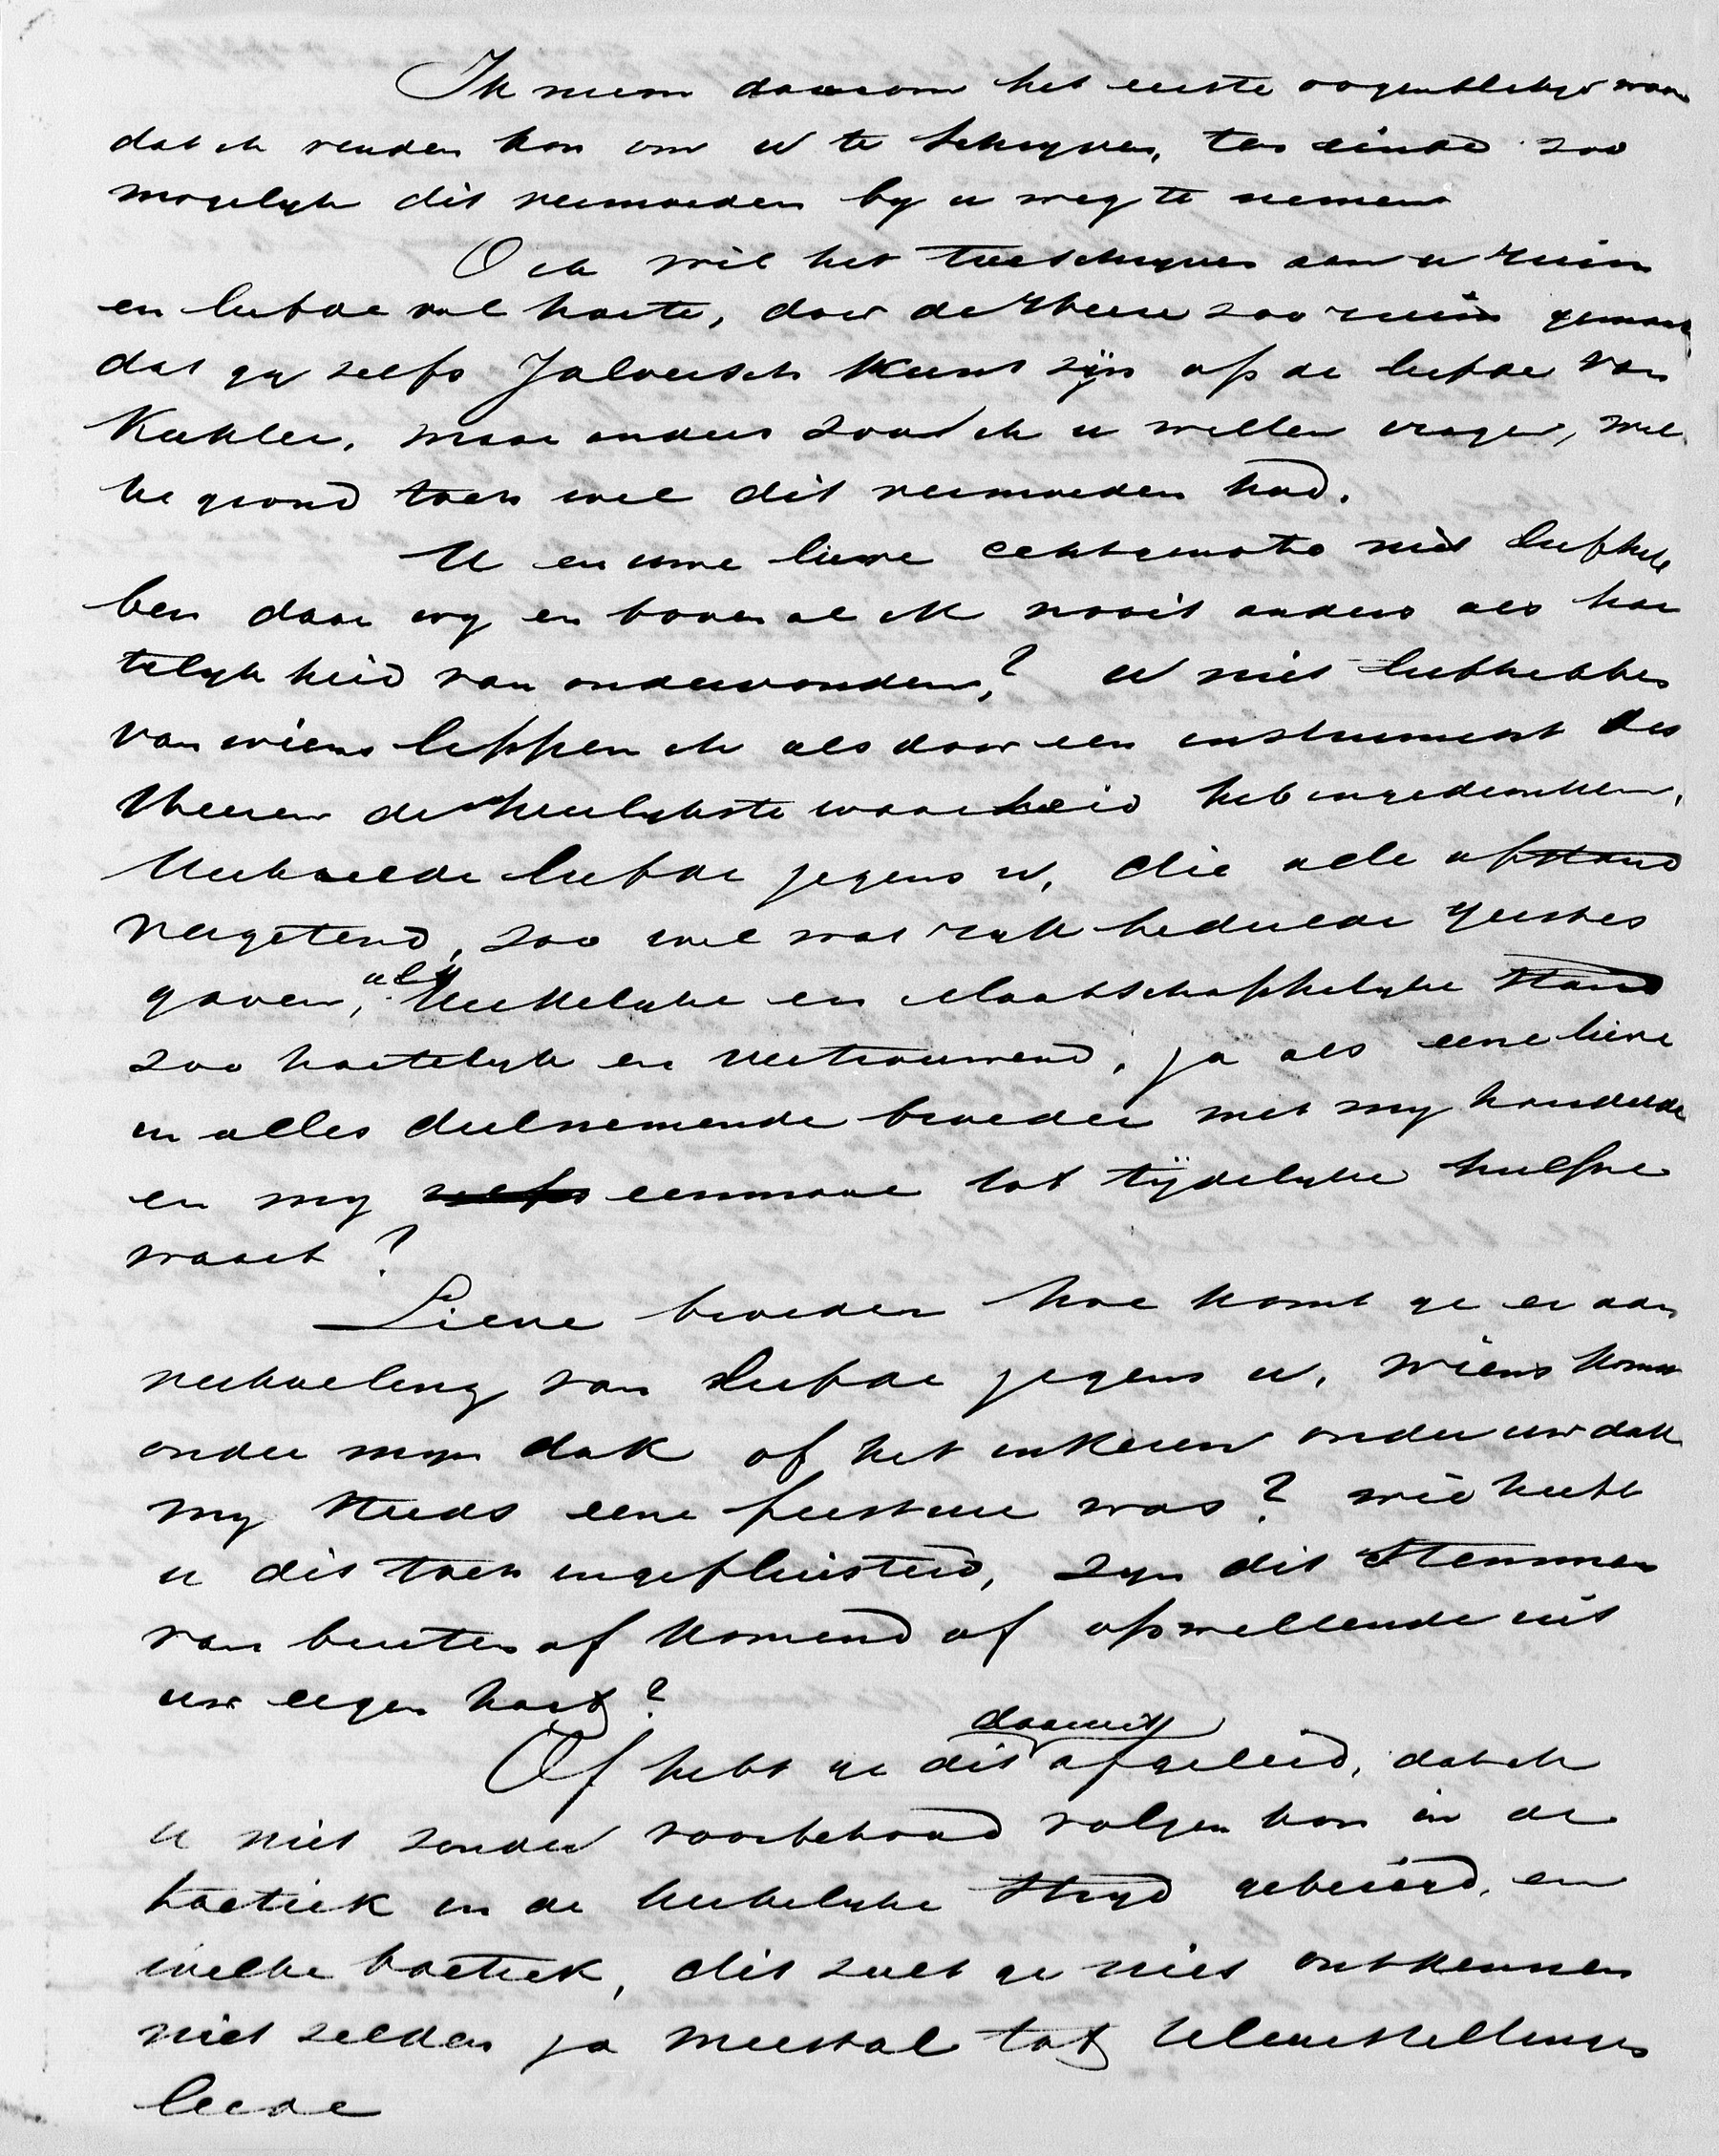 Ik neem daarom het eerste oogenblikje waar
dat ik vinden kon om u te schryven, ten einde zoo
mogelyk dit vermoeden by u weg te nemen
O ik wil het toeschryven aan u ruim
en liefde vol harte, door de Heere zoo ruim gemaakt
dat gy zelfs Jaloersch kunt zijn op de liefde van
maar anders zoud ik u willen vragen, wel
ke grond toch wel dit vermoeden had.
U en uwe lieve echtgenote niet liefheb
ben daar wy en boven al ik nooit anders als har
telyk heid van ondervonden? U niet liefhebben
van wiens lippen ik als door een instrument des
Heeren de heerlykste waarheid heb ingedronken,
Verkoelde liefde jegens u, die alle afstand
vergetend, zoo wel wat ryk bedeelde geestes
gaven, als Kerkelyke en Maatschappelyke stand
zoo hartelyk en vertrouwend, ja als eene lieve
in alles deelnemende broeder met my handelde
en my zelfs eenmaal tot tijdelyke hulpe
waart?
Lieve broeder hoe komt ge er aan
verkoeling van liefde jegens u, wiens komst
onder myn dak of het inkeeren onder uw dak
my steeds eene feestuur was? wie heeft
u dit toch ingefluisterd, zyn dit stemmen
van buiten af komend of opwellende uit
uw eigen hart?
Of hebt ge dit daaruit afgeleid, dat ik
u niet zonder voorbehoud volgen kon in de
tactiek in de kerkelyke stryd gebeurd, en
welke tactiek, dit zult ge niet ontkennen
niet zelden ja meestal tot teleurstellingen
leidde